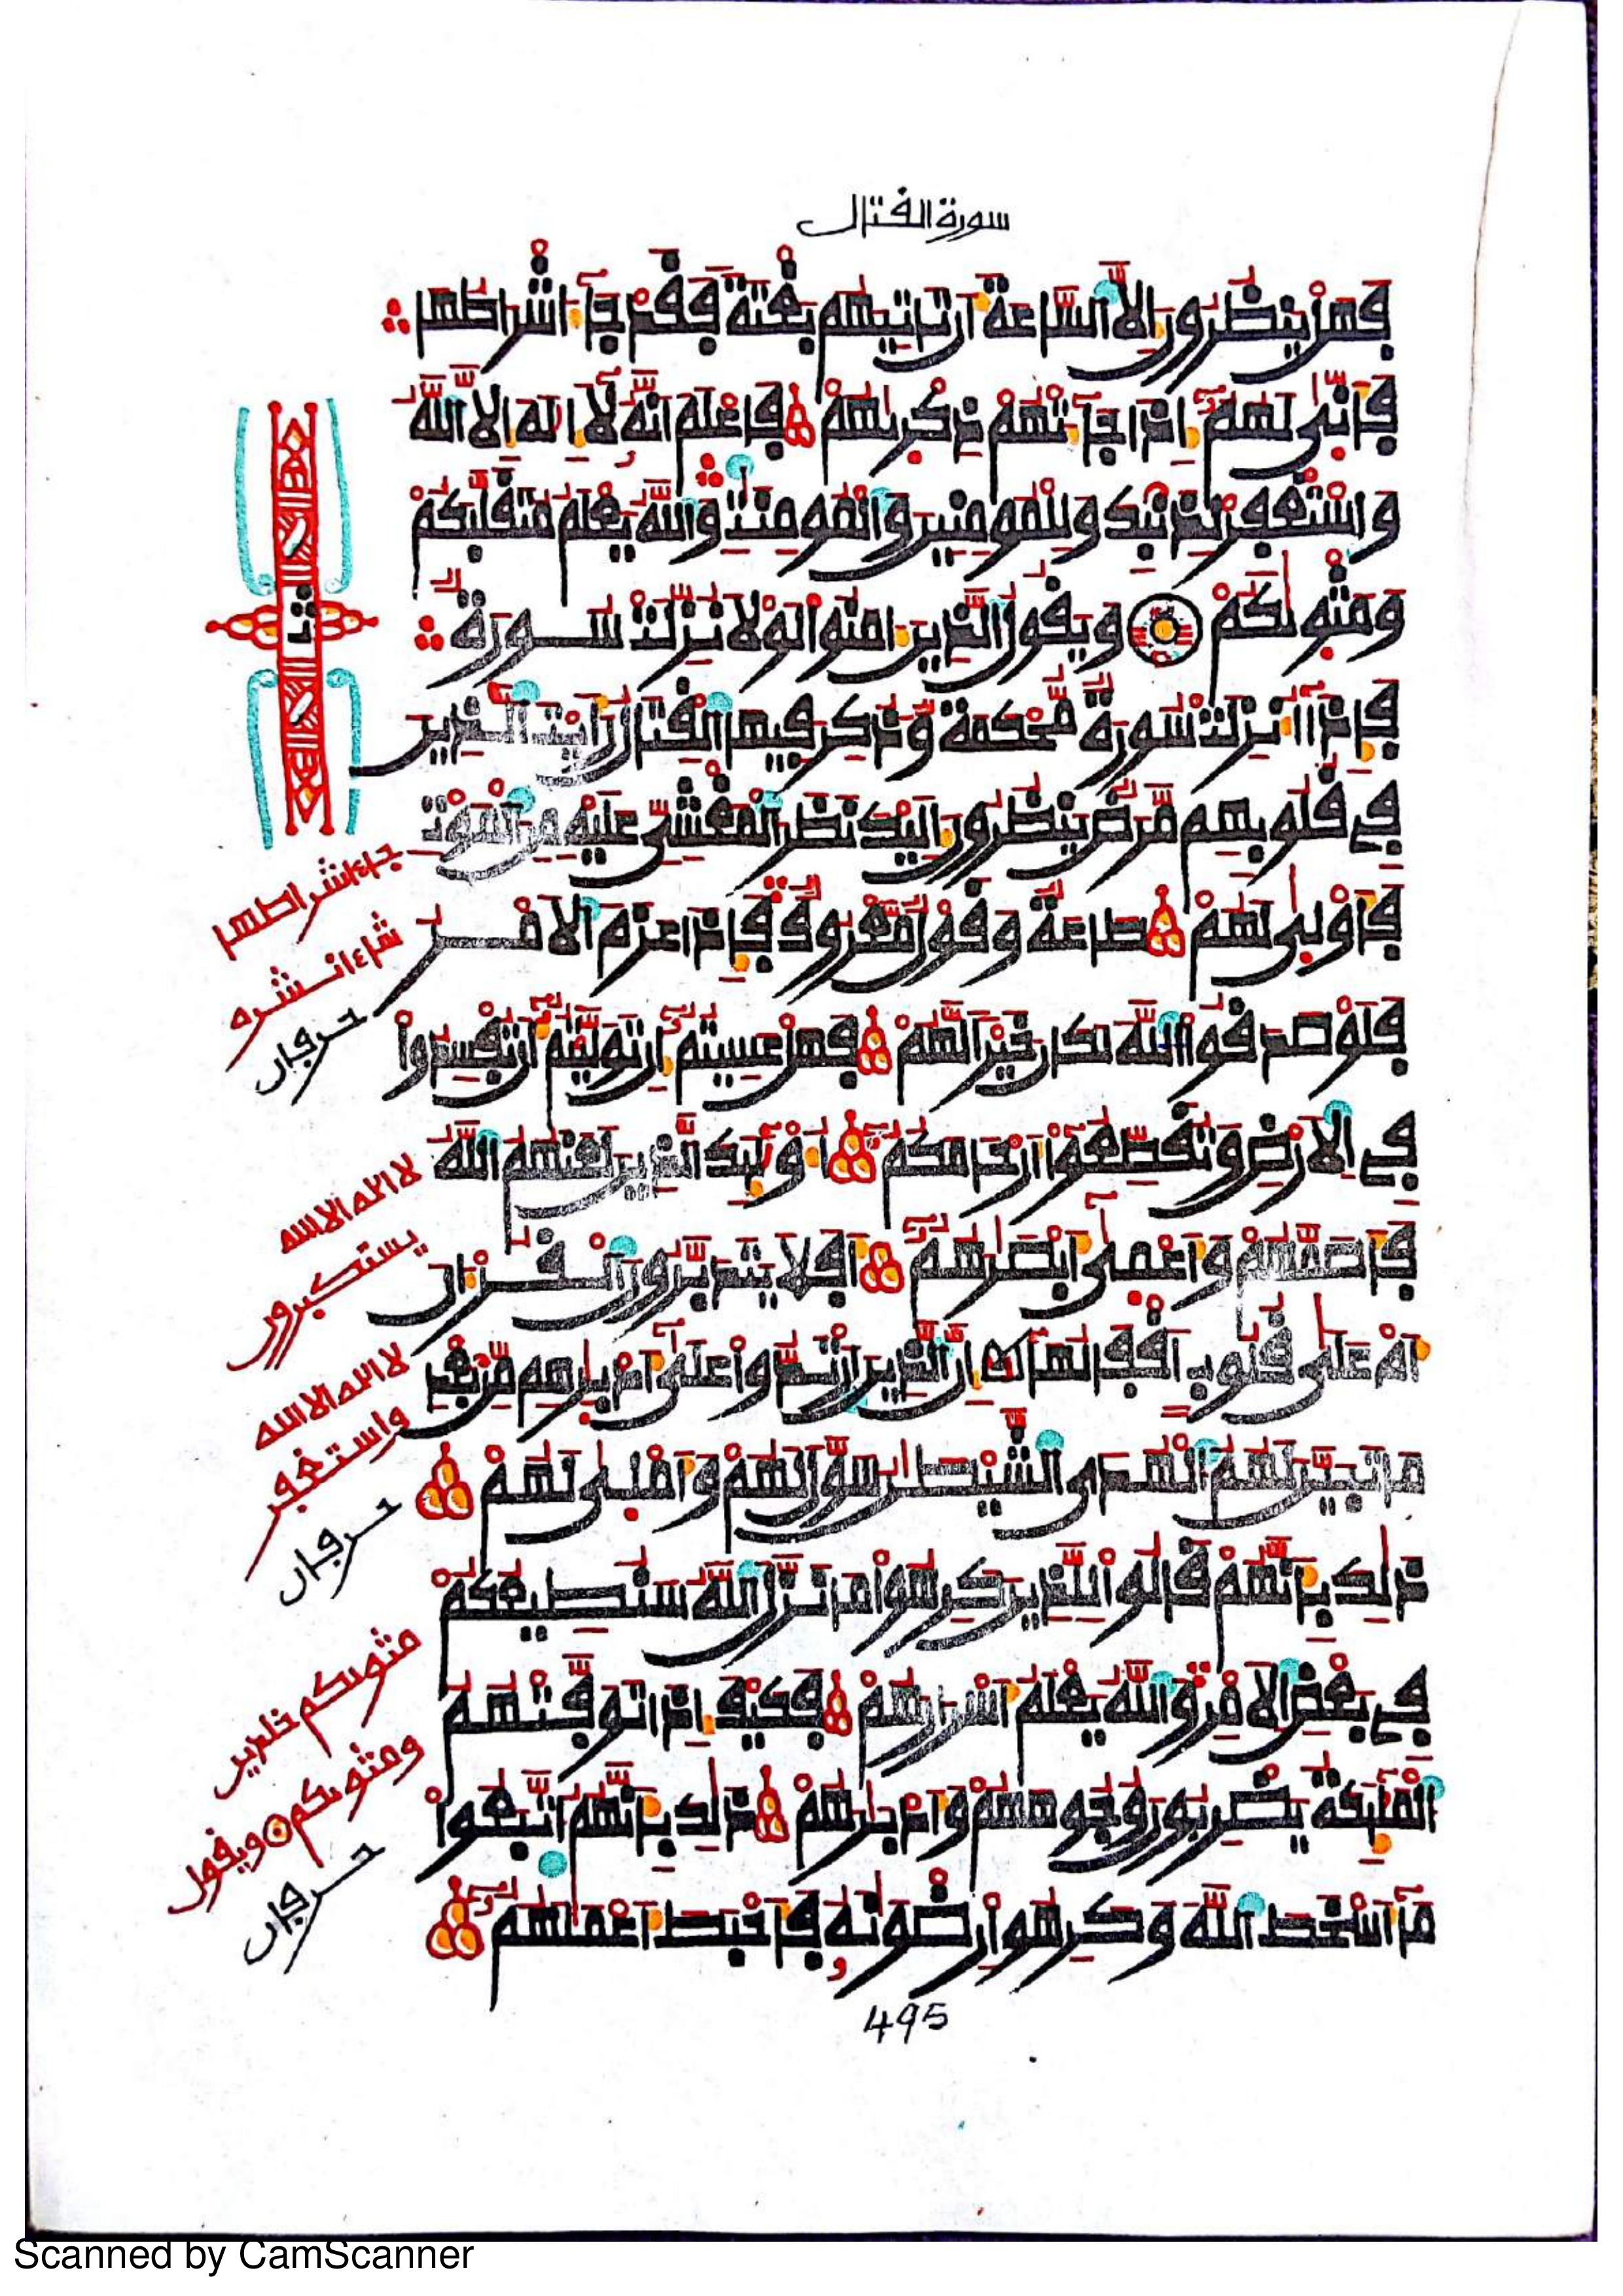 سورة القتال
فهل ينظرون إلا الساعة أن تاتيهم بغتة فقد جا أشراطها
فأنى لهم إذا جآتهم ذكرىهم فاعلم أنه لا إله إلا الله
واستغفر لذنبك وللمومنين والمومنت والله يعلم متقلبكم
ومثوىكم ويقول الذين امنوا لولا نزلت سورة
فإذا أنزلت سورة محكمة وذكر فيها القتال رأيت الذين
في قلوبهم مرض ينظرون إليك نظر المغشي عليه من الموت
فأولى لهم طاعة وقول معروف فإذا عزم الامر
فلو صدقوا الله لكان خيرا لهم فهل عسيتم إن توليتم أن تفسدوا
في الارض وتقطعوا أرحامكم أولئك الذين لعنهم الله
فأصمهم وأعمى أبصرهم أفلا يتدبرون القرءان
أم على قلوب أقفالها إن الذين ارتدوا على أدبرهم من بعد
ما تبين لهم الهدى الشيطن سول لهم وأملى لهم
ذلك بأنهم قالوا للذين كرهوا ما نزل الله سنطيعكم
في بعض الامر والله يعلم أسرارهم فكيف إذا توفتهم
الملئكة يضربون وجوههم وأدبرهم ذلك بأنهم اتبعوا
ما أسخط الله وكرهوا رضونه فأحبط أعملهم
495
ثمن
جاء اشراطها
شاء انشره
حرفان
لا اله الا الله
يستكبرون
لا اله الا الله
واستغفر
حرفان
مثوىكم خلدين
ومثوىكم ويقول
حرفان
Scanned by CamScanner